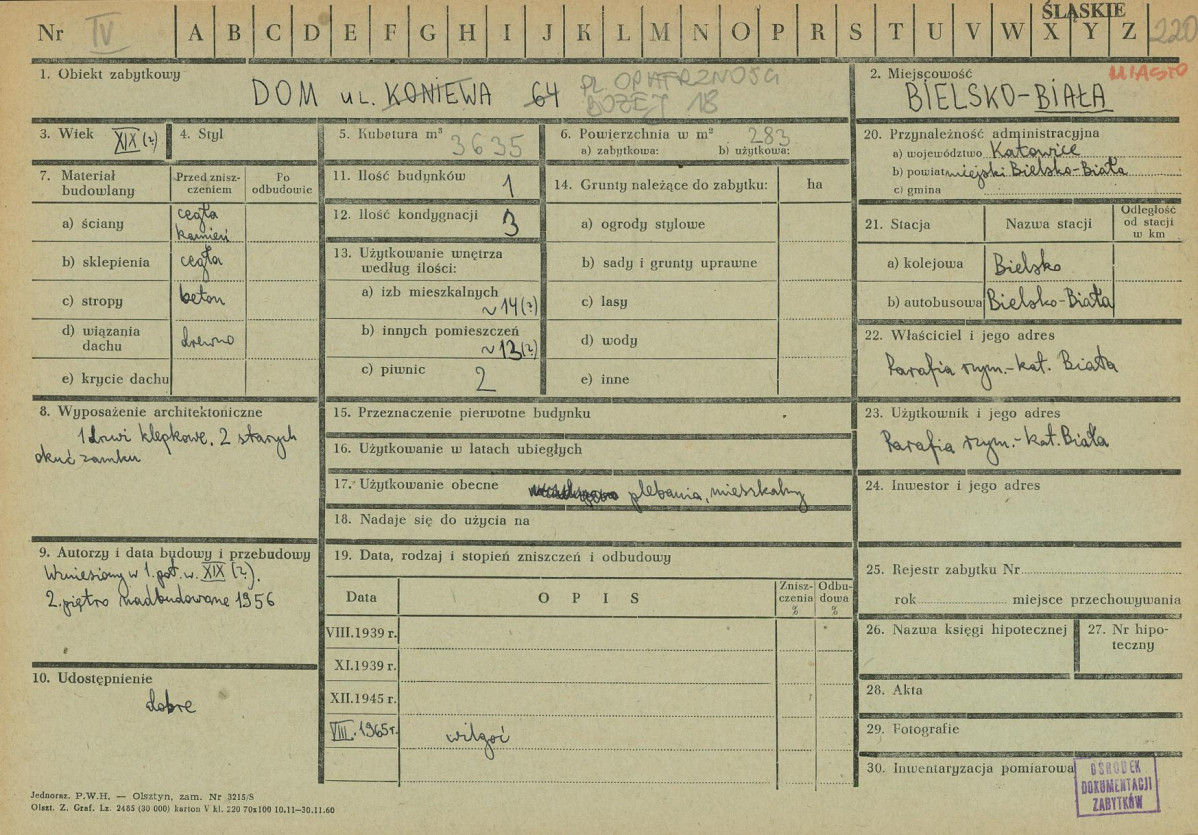 ŚLĄSKIE
Nr IV A B C D E F G H I J K L M N O P R S T U V W X Y Z 220
1. Obiekt zabytkowy
DOM ul. KONIEWA 64 PL. OPATRZNOŚCI
BOŻEJ 18
2. Miejscowość MIASTO
BIELSKO-BIAŁA
3. Wiek XIX (?)
4. Styl
5. Kubatura m³ 3635
6. Powierzchnia w m² 283
a) zabytkowa: b) użytkowa:
7. Materiał budowlany
Przed znisz-
czeniem
Po
odbudowie
a) ściany cegła
kamień
b) sklepienia cegła
c) stropy beton
d) wiązania
dachu drewno
e) krycie dachu
8. Wyposażenie architektoniczne
1 drzwi klepkowe, 2 starych
okuć zamku
9. Autorzy i data budowy i przebudowy
Wzniesiony w 1. poł. w. XIX (?).
2. piętro nadbudowane 1956
10. Udostępnienie
dobre
11. Ilość budynków 1
12. Ilość kondygnacji 3
13. Użytkowanie wnętrza
według ilości:
a) izb mieszkalnych
~ 14 (?)
b) innych pomieszczeń
~ 13 (?)
c) piwnic 2
14. Grunty należące do zabytku: ha
a) ogrody stylowe
b) sady i grunty uprawne
c) lasy
d) wody
e) inne
15. Przeznaczenie pierwotne budynku
16. Użytkowanie w latach ubiegłych
17. Użytkowanie obecne plebania, mieszkalny
18. Nadaje się do użycia na
19. Data, rodzaj i stopień zniszczeń i odbudowy
Data O P I S Znisz-
czenia
% Odbu-
dowa
%
VIII.1939 r.
XI.1939 r.
XII.1945 r.
VIII.1965 r. wilgoć
20. Przynależność administracyjna
a) województwo Katowice
b) powiat miejski Bielsko-Biała
c) gmina
21. Stacja Nazwa stacji Odległość
od stacji
w km
a) kolejowa Bielsko
b) autobusowa Bielsko-Biała
22. Właściciel i jego adres
Parafia rzym.-kat. Biała
23. Użytkownik i jego adres
Parafia rzym.-kat. Biała
24. Inwestor i jego adres
25. Rejestr zabytku Nr
rok miejsce przechowywania
26. Nazwa księgi hipotecznej
27. Nr hipo-
teczny
28. Akta
29. Fotografie
30. Inwentaryzacja pomiarowa
OŚRODEK
DOKUMENTACJI
ZABYTKÓW
Jednoraz. P.W.H. — Olsztyn, zam. Nr 3215/S
Olszt. Z. Graf. Lz. 2485 (30 000) karton V kl. 220 70x100 10.11—30.11.60